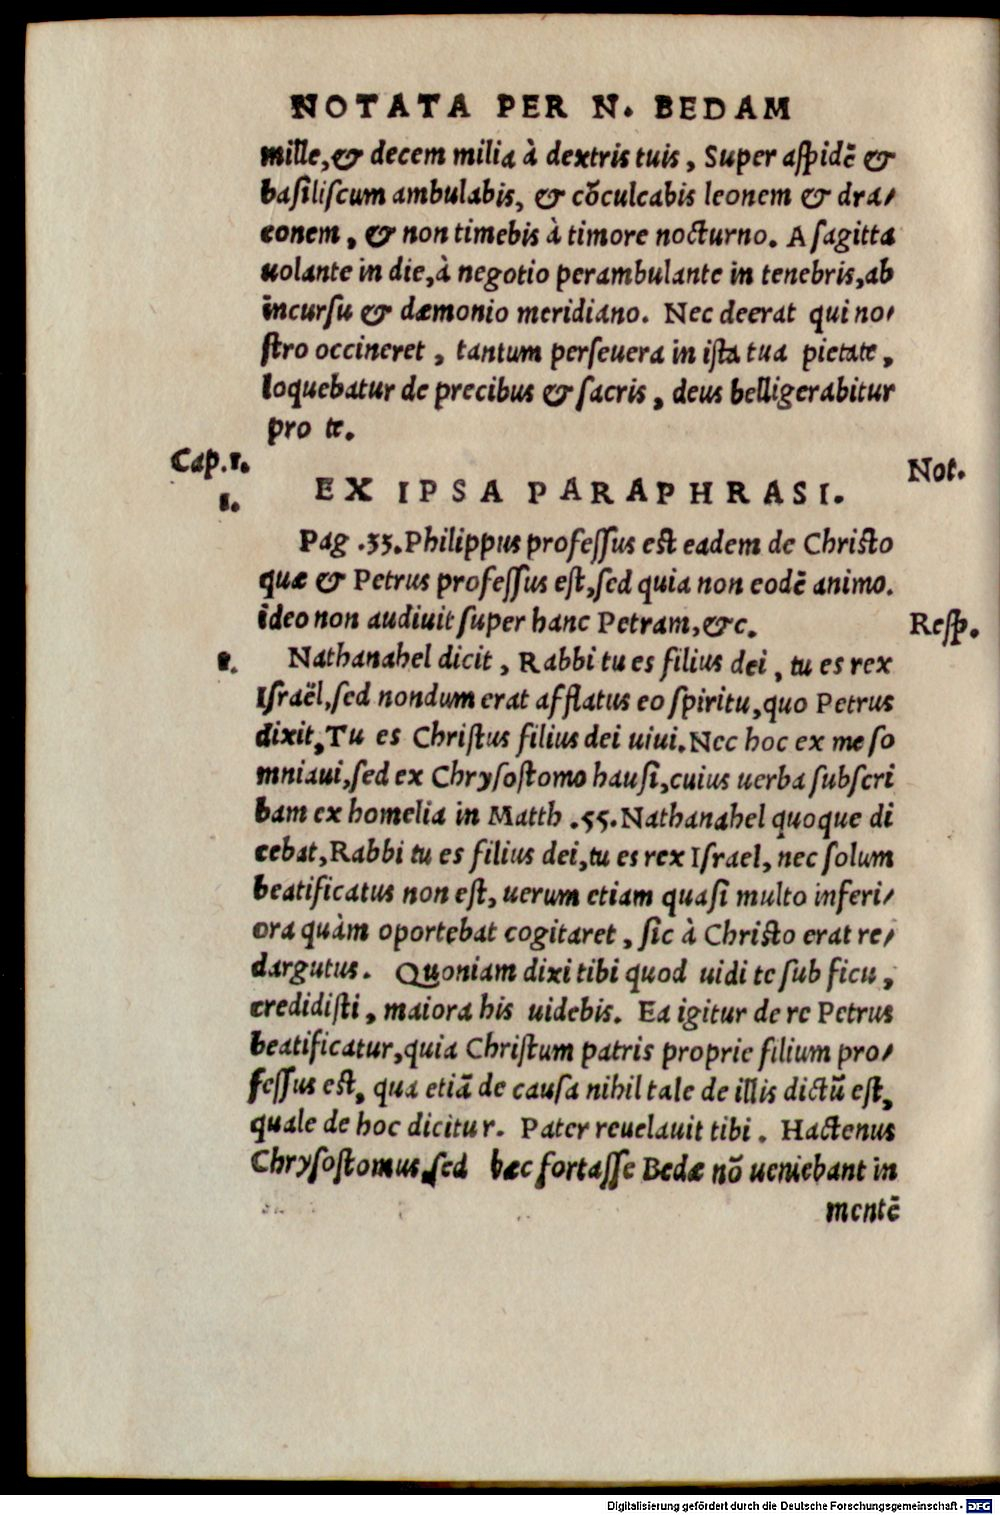 NOTATA PER N. BEDAM
mille, & decem milia à dextris tuis, Super aspidē &
basiliscum ambulabis, & cōculcabis leonem & dra/
conem, & non timebis à timore nocturno. A sagitta
uolante in die, à negotio perambulante in tenebris, ab
incursu & dæmonio meridiano. Nec deerat qui no/
stro occineret, tantum perseuera in ista tua pietate,
loquebatur de precibus & sacris, deus belligerabitur
pro te.
Cap.1.
Not.
1.
EX IPSA PARAPHRASI.
Pag .35. Philippus professus est eadem de Christo
quæ & Petrus professus est, sed quia non eodē animo.
ideo non audiuit super hanc Petram, &c.
Resp.
Nathanahel dicit, Rabbi tu es filius dei, tu es rex
Israël, sed nondum erat afflatus eo spiritu, quo Petrus
dixit, Tu es Christus filius dei uiui. Nec hoc ex me so
mniaui, sed ex Chrysostomo hausi, cuius uerba subscri
bam ex homelia in Matth .55. Nathanahel quoque di
cebat, Rabbi tu es filius dei, tu es rex Israel, nec solum
beatificatus non est, uerum etiam quasi multo inferi/
ora quàm oportebat cogitaret, sic à Christo erat re/
dargutus. Quoniam dixi tibi quod uidi te sub ficu,
credidisti, maiora his uidebis. Ea igitur de re Petrus
beatificatur, quia Christum patris proprie filium pro/
fessus est, qua etiā de causa nihil tale de illis dictū est,
quale de hoc dicitur. Pater reuelauit tibi. Hactenus
Chrysostomus, sed hæc fortasse Bedæ nō ueniebant in
mentē
Digitalisierung gefördert durch die Deutsche Forschungsgemeinschaft - DFG